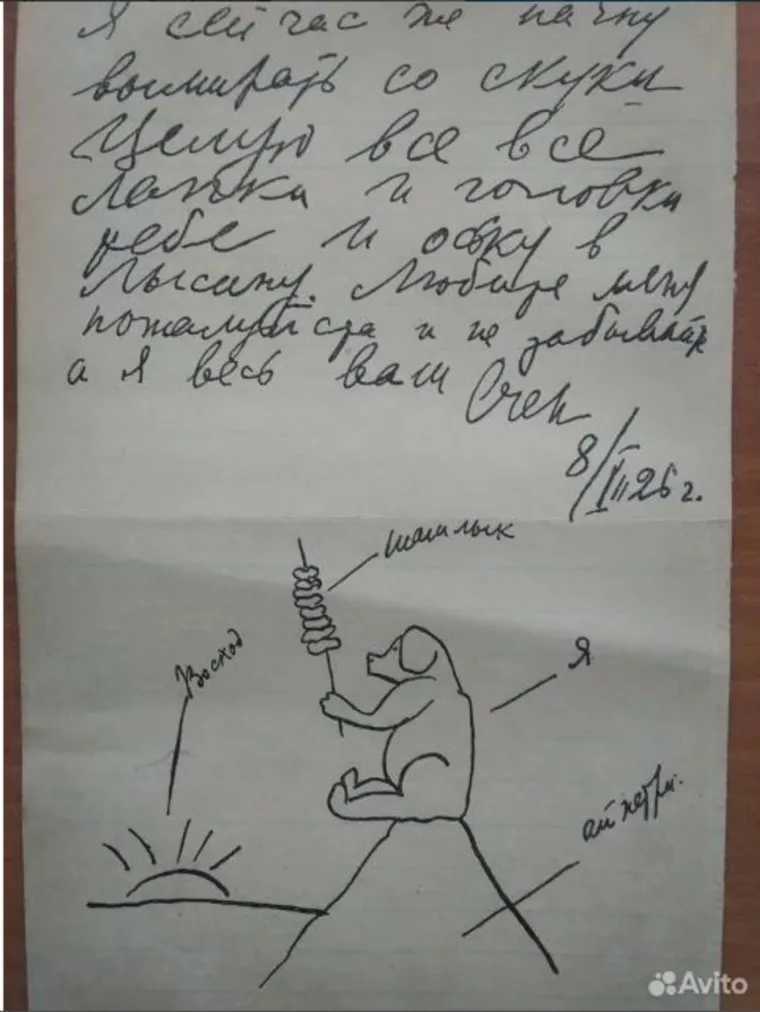 Я сейчас же начну
вымирать со скуки
Целую все все
лапки и головки
тебе и оську в
лысину. Любите меня
пожалуйста и не забывайте
а я весь ваш Счен
8/VII 26 г.
шашлык
Восход
Я
ай петри.
Avito